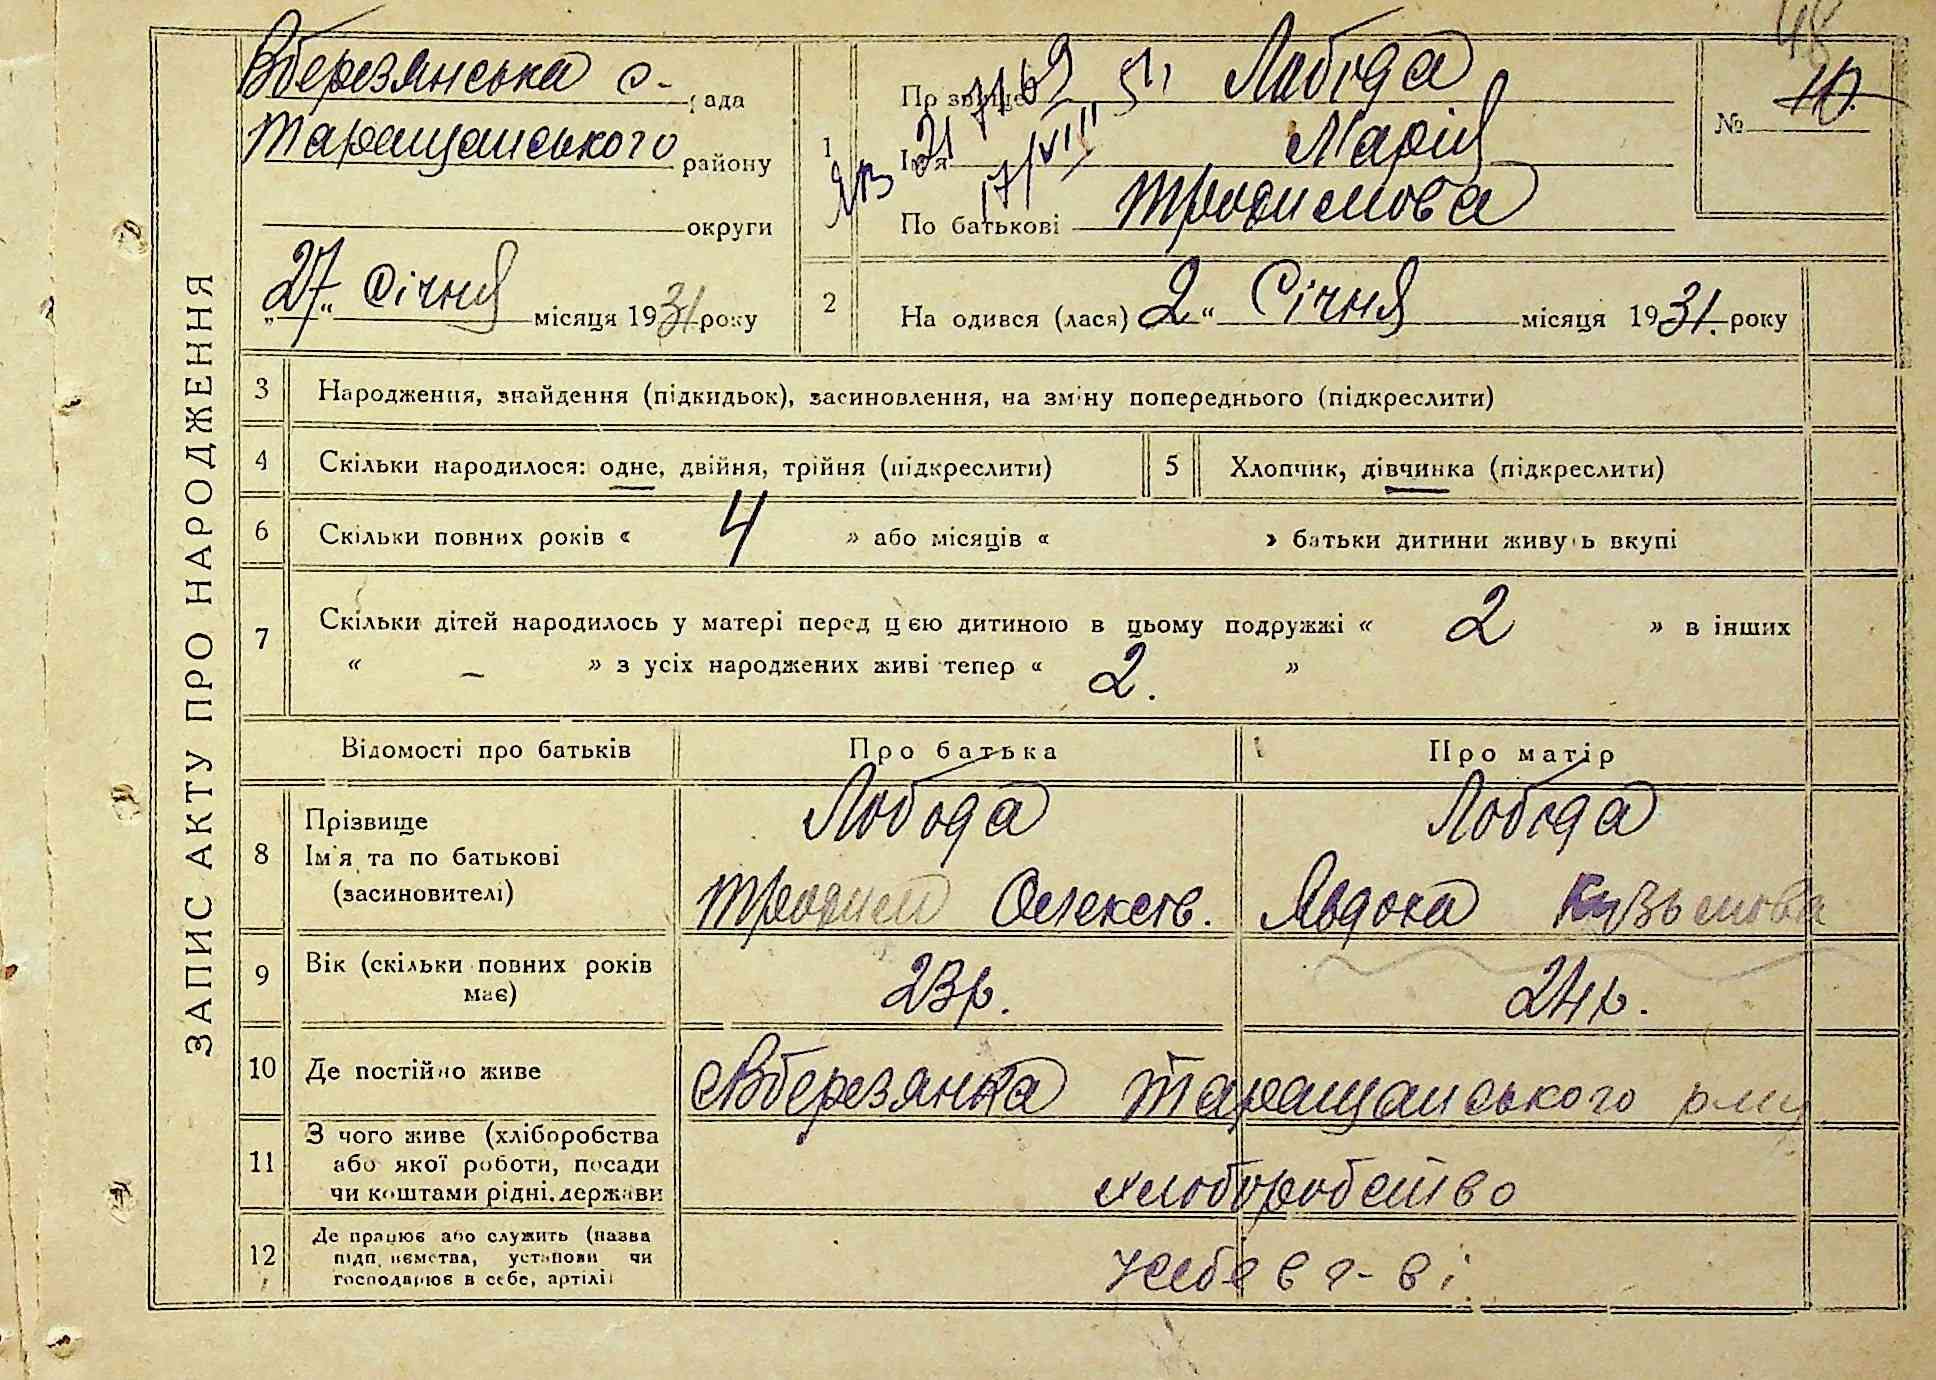 48
ЗАПИС АКТУ ПРО НАРОДЖЕННЯ
Вберезянська с. рада
Таращанського району
округи
„27“ Січня місяця 1931 року
1
Прізвище Лобода
Ім'я Марія
По батькові Трохимова
№ 10.
2
Народився (лася) 2 “ Січня місяця 1931. року
3 Народження, знайдення (підкидьок), засиновлення, на зміну попереднього (підкреслити)
4 Скільки народилося: одне, двійня, трійня (підкреслити) 5 Хлопчик, дівчинка (підкреслити)
6 Скільки повних років « 4 » або місяців « » батьки дитини живуть вкупі
7 Скільки дітей народилось у матері перед цією дитиною в цьому подружжі « 2 » в інших
« – » з усіх народжених живі тепер « 2. »
Відомості про батьків Про батька Про матір
8 Прізвище Лобода Лобода
Ім'я та по батькові
(засиновителі) Трохим Олекств. Явдоха Кузьмова
9 Вік (скільки повних років має) 23р. 24р.
10 Де постійно живе Вберезянка Таращанського р-ну
11 З чого живе (хліборобства
або якої роботи, посади
чи коштами рідні, держави хлоборобство
12 Де працює або служить (назва
підприємства, установи чи
господарює в себе, артілі)